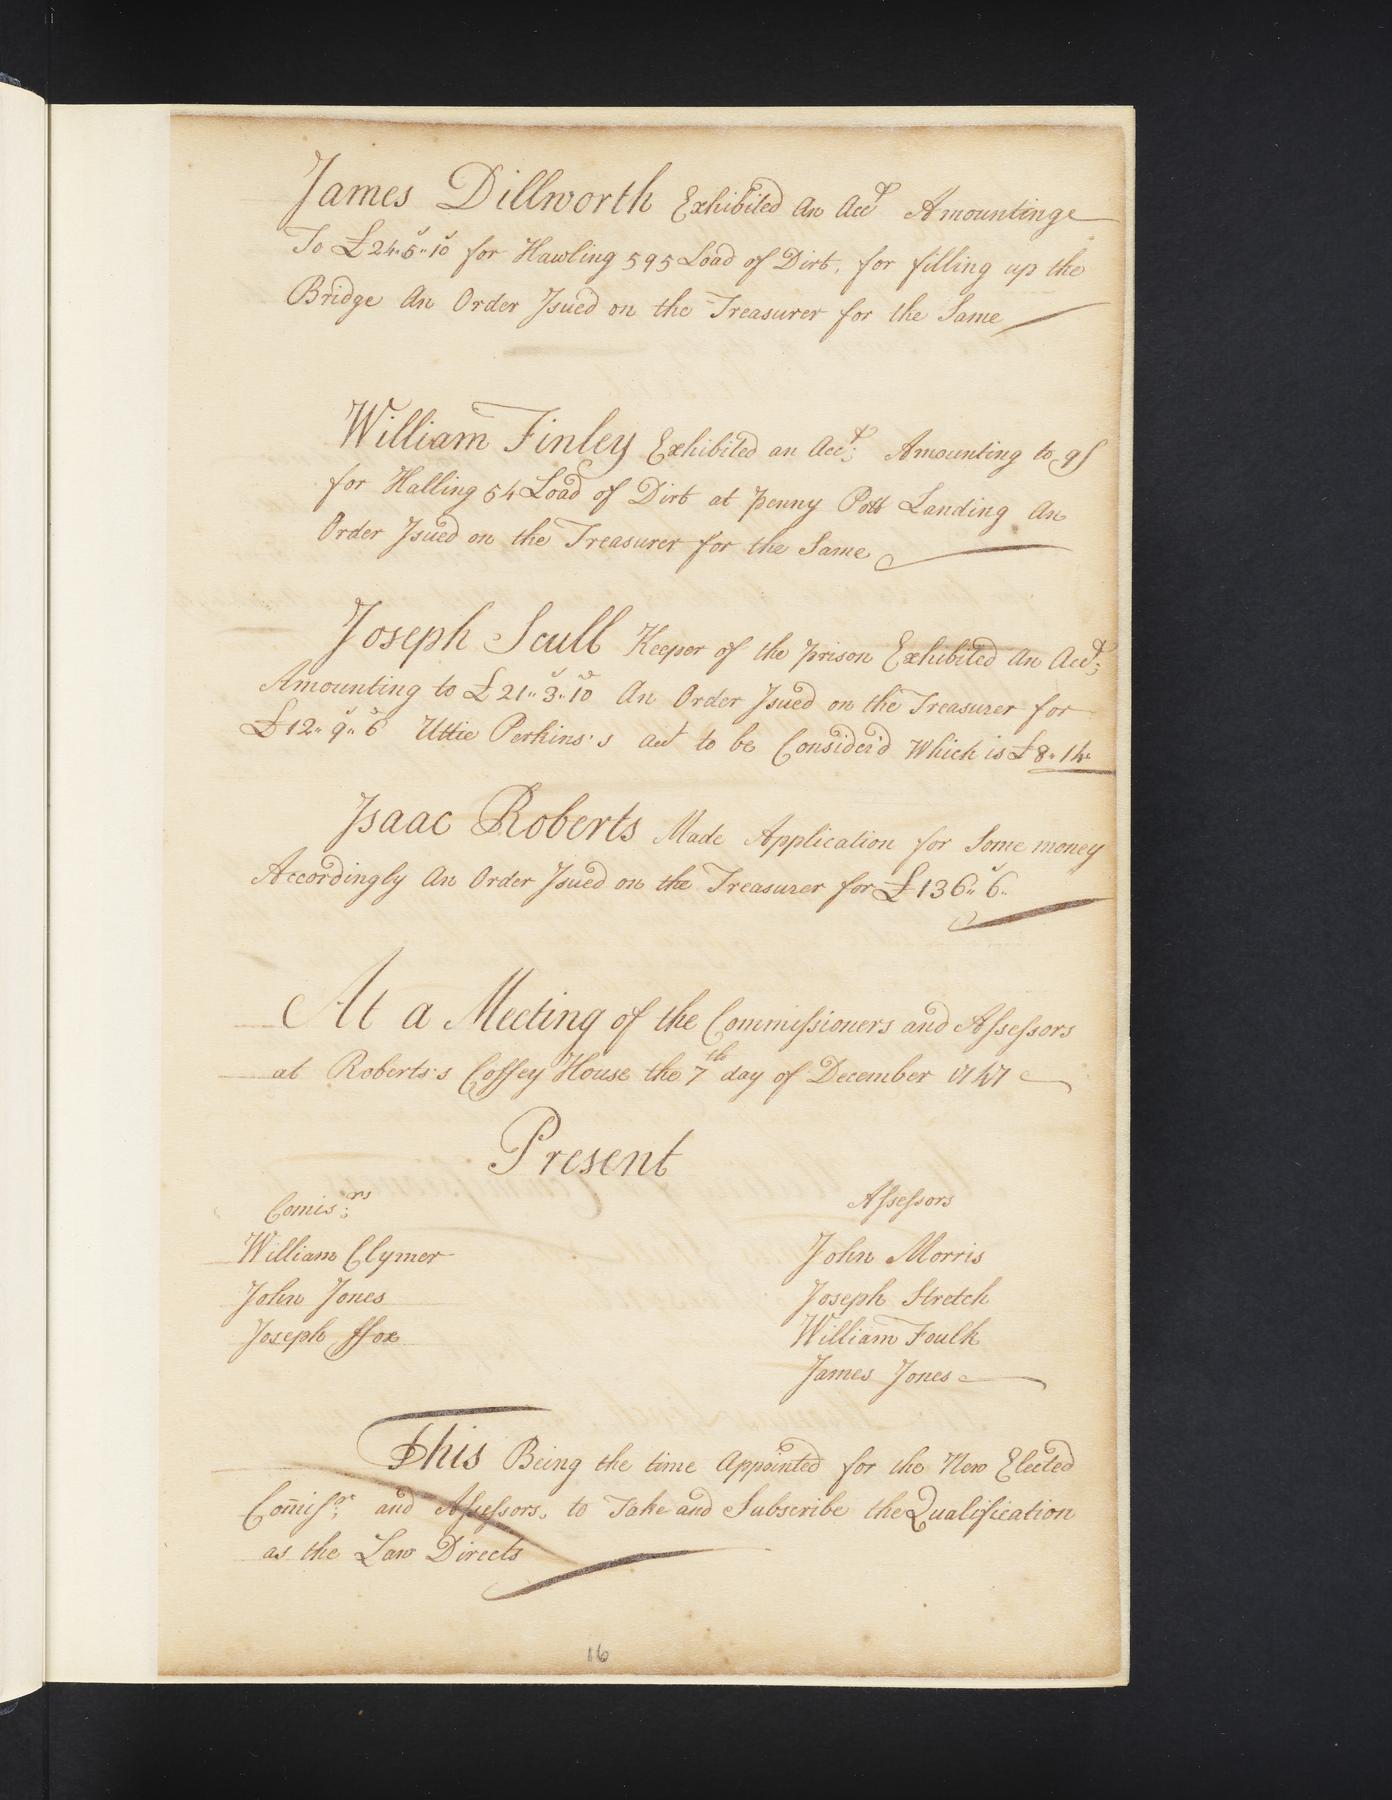 James Dillworth Exhibited An Acct Amountinge
To £24"5s"10d for Hawling 595 Load of Dirt, for filling up the
Bridge An Order Isued on the Treasurer for the Same
William Finley Exhibited an Acct; Amounting to 9s
for Halling 54 Load of Dirt at Penny Pott Landing An
Order Isued on the Treasurer for the Same
Joseph Scull Keeper of the prison Exhibited An Acct;
Amounting to £21"3s"10d An Order Isued on the Treasurer for
£12"9s"6d Uttie Perkins's acct to be Consider'd Which is £8"14
Isaac Roberts Made Application for Some money
Accordingly An Order Isued on the Treasurer for £136"6s"
At a Meeting of the Commissioners and Assessors
at Roberts's Coffey House the 7th day of December 1747
Present
Comis:rs
Assessors
William Clymer
John Morris
John Jones
Joseph Stretch
Joseph ffox
William Foulk
James Jones
This Being the time Appointed for the New Elected
Comissrs; and Assessors, to Take and Subscribe the Qualification
as the Law Directs
16